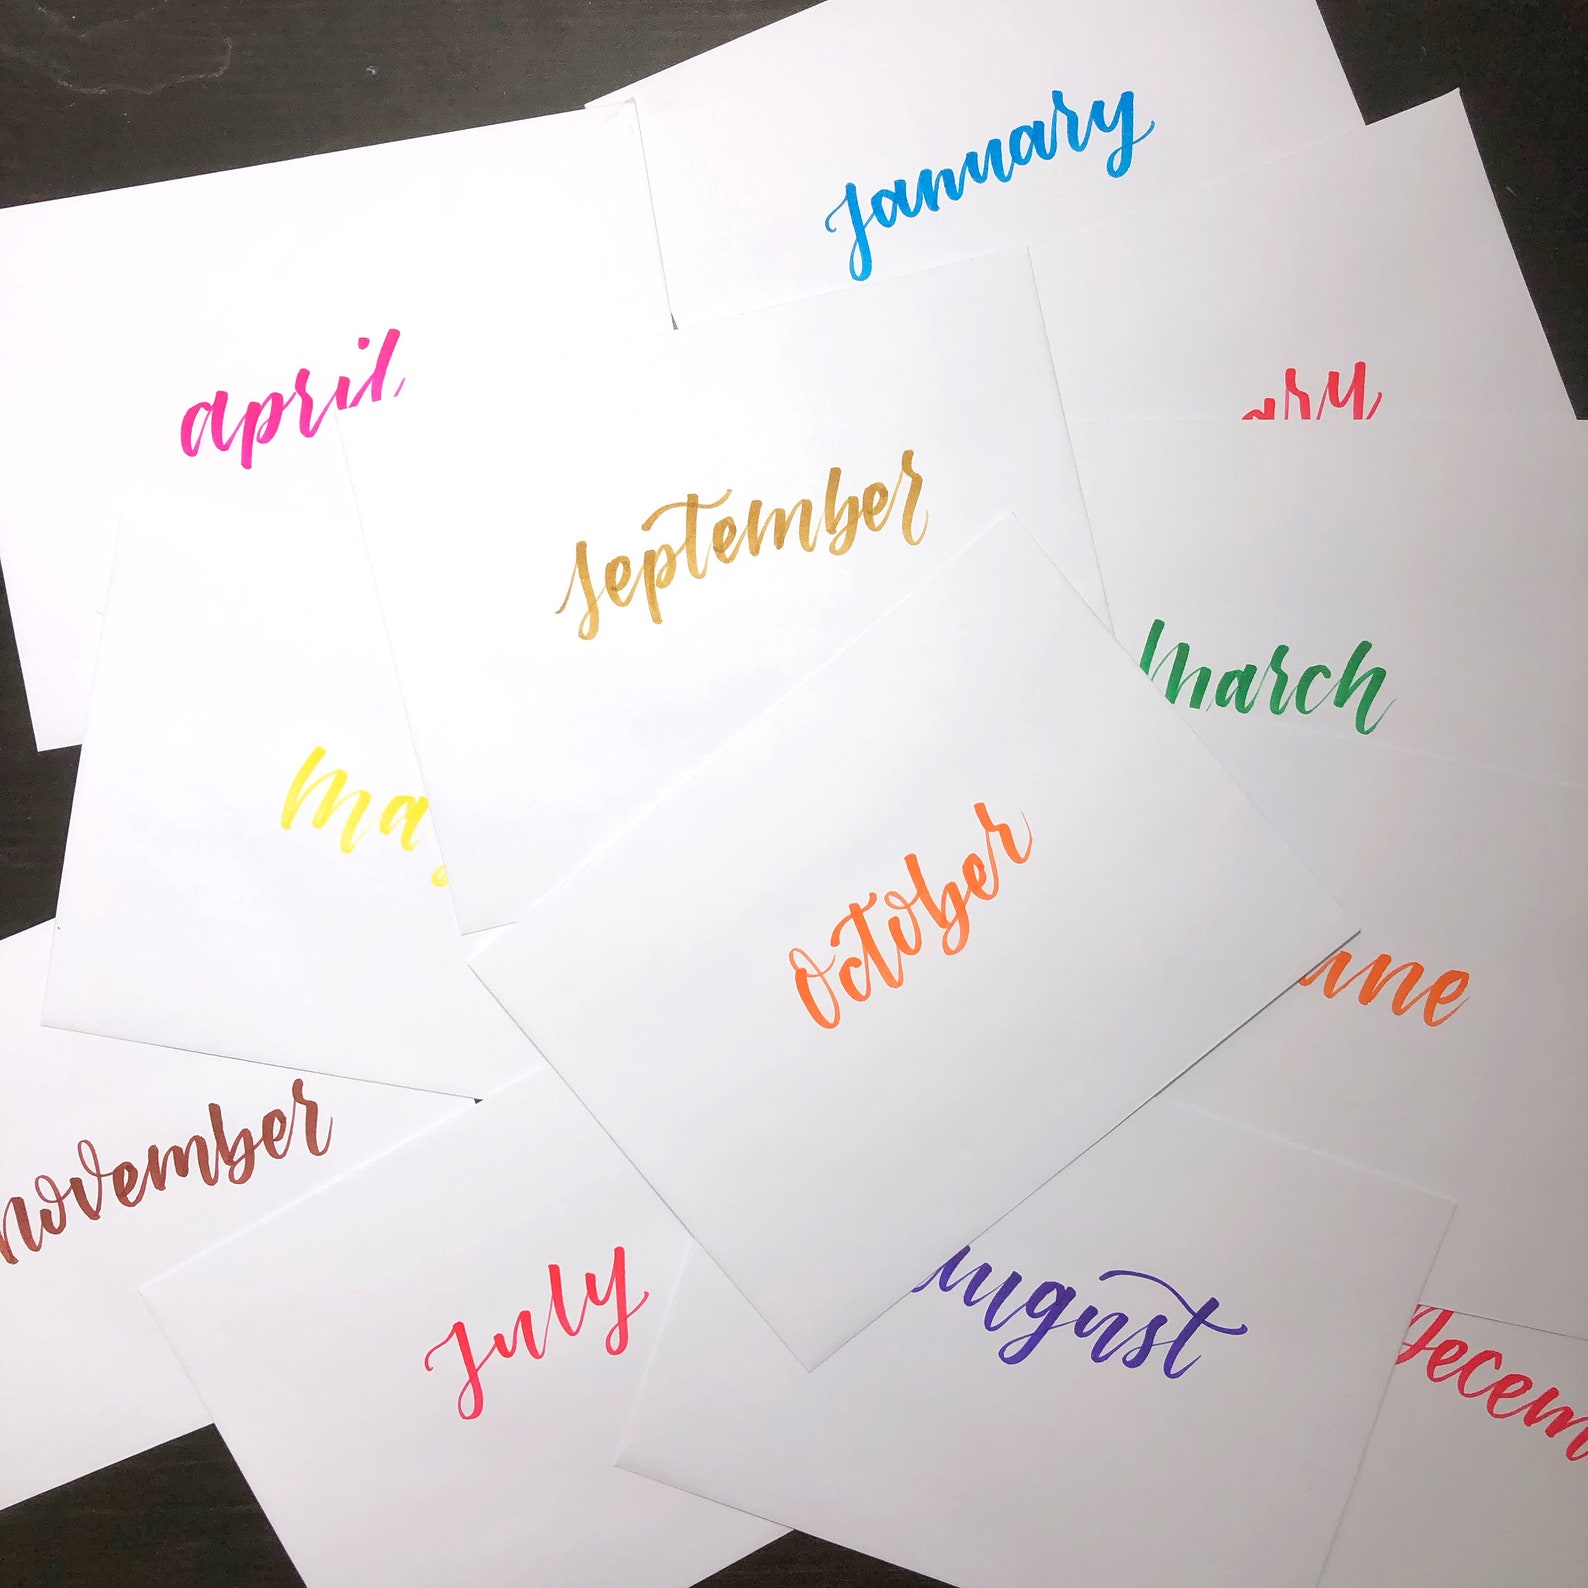 January
ary
april
September
March
May
October
une
november
July
august
Decem